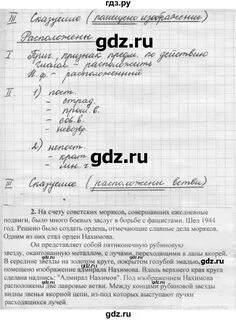 gdz.ru
III Сказуемое (помещено изображение)
Расположены
I Прич., признак предм. по действию
глагол - расположить
Н.ф. - расположенный
II 1) пост.
- страд.
- прош. в.
- сов. в.
- невозвр.
2) непост.
- кратк.
- мн. ч.
III Сказуемое (расположены ветви)
2. На счету советских моряков, совершавших ежедневные
подвиги, было много боевых заслуг в борьбе с фашистами. Шел 1944
год. Решено было создать ордена, отмечающие славные дела моряков.
Одним из них стал орден Нахимова.
Он представляет собой пятиконечную рубиновую
звезду, окантованную металлом, с лучами, переходящими в лапы якорей.
В середине звезды на золотом круге, покрытом голубой эмалью,
помещено изображение адмирала Нахимова. Вдоль верхнего края круга
сделана надпись: "Адмирал Нахимов". Под изображением Нахимова
расположены две лавровые ветви. Между концами рубиновой звезды
видны звенья якорной цепи, из-под которых выступают пучки
расходящихся лучей.
gdz.ru